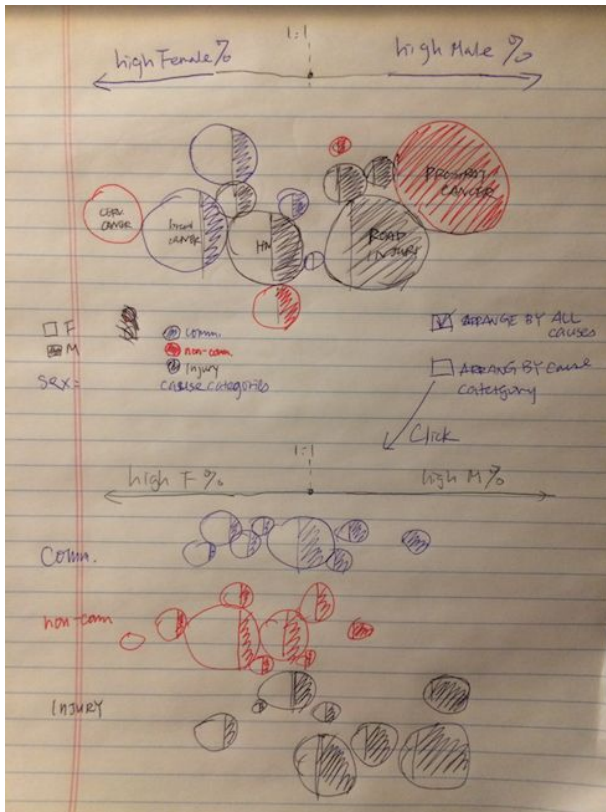 1:1
high Female %
high Male %
CERV.
CANCER
CANCER
PROSTAT
CANCER
ROAD
INJURY
F
M
SEX =
comm.
non-comm.
Injury
cause categories
ARRANGE BY ALL
causes
ARRANG BY cause
category
Click
1:1
high F %
high M %
Comm.
non-comm
INJURY